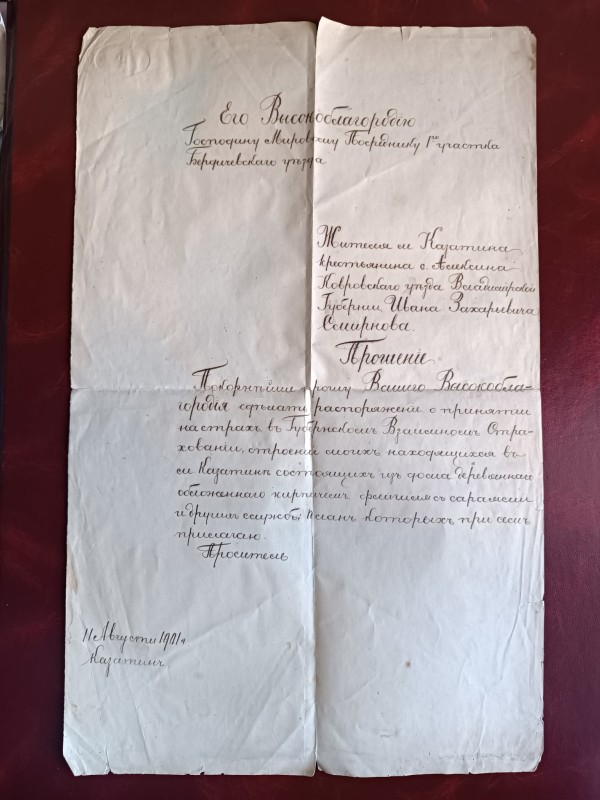 Его Высокоблагородію
Господину Мировому Посреднику 1го участка
Бердичевскаго уѣзда
Жителя м Казатина
крестьянина с. Алексина
Ковровскаго уѣзда Владимирской
Губернии, Ивана Захарьевича
Смирнова.
Прошеніе
Покорнѣйше прошу Вашего Высокобла-
городія сдѣлать распоряженіе о принятии
на страхъ въ Губернскомъ Взаимномъ Стра-
хованіи, строеній моихъ находящихся въ
м Казатинѣ состоящихъ изъ дома деревяннаго
обложеннаго кирпичемъ, флигеля съ сараями
и другихъ службъ; планъ которыхъ при семъ
прилагаю.
Проситель
11 Августа 1901 г
Казатинъ